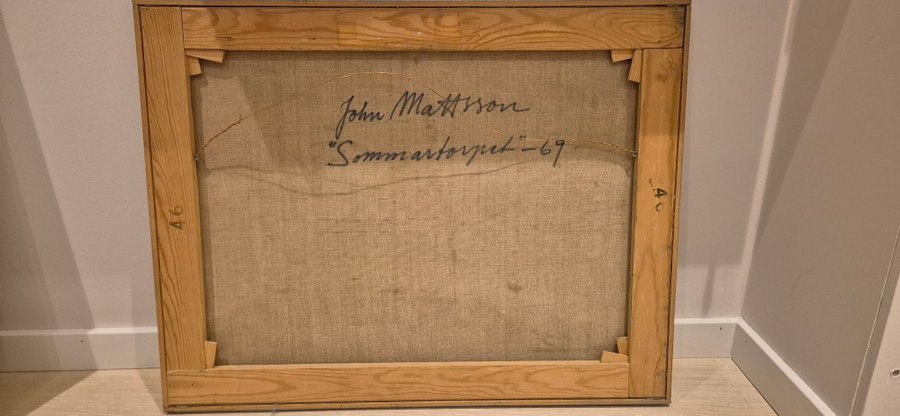 John Mattsson
"Sommartorpet" -69
46
46